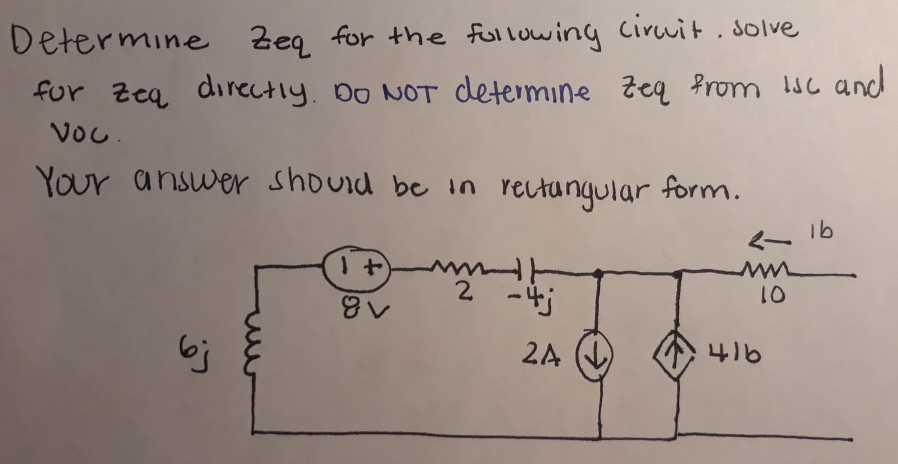 Determine Zeq for the following circuit. solve
for Zeq directly. DO NOT determine Zeq from ISC and
VOC.
Your answer should be in rectangular form.
← ib
| +
8V
2
-4j
10
6j
2A
4ib